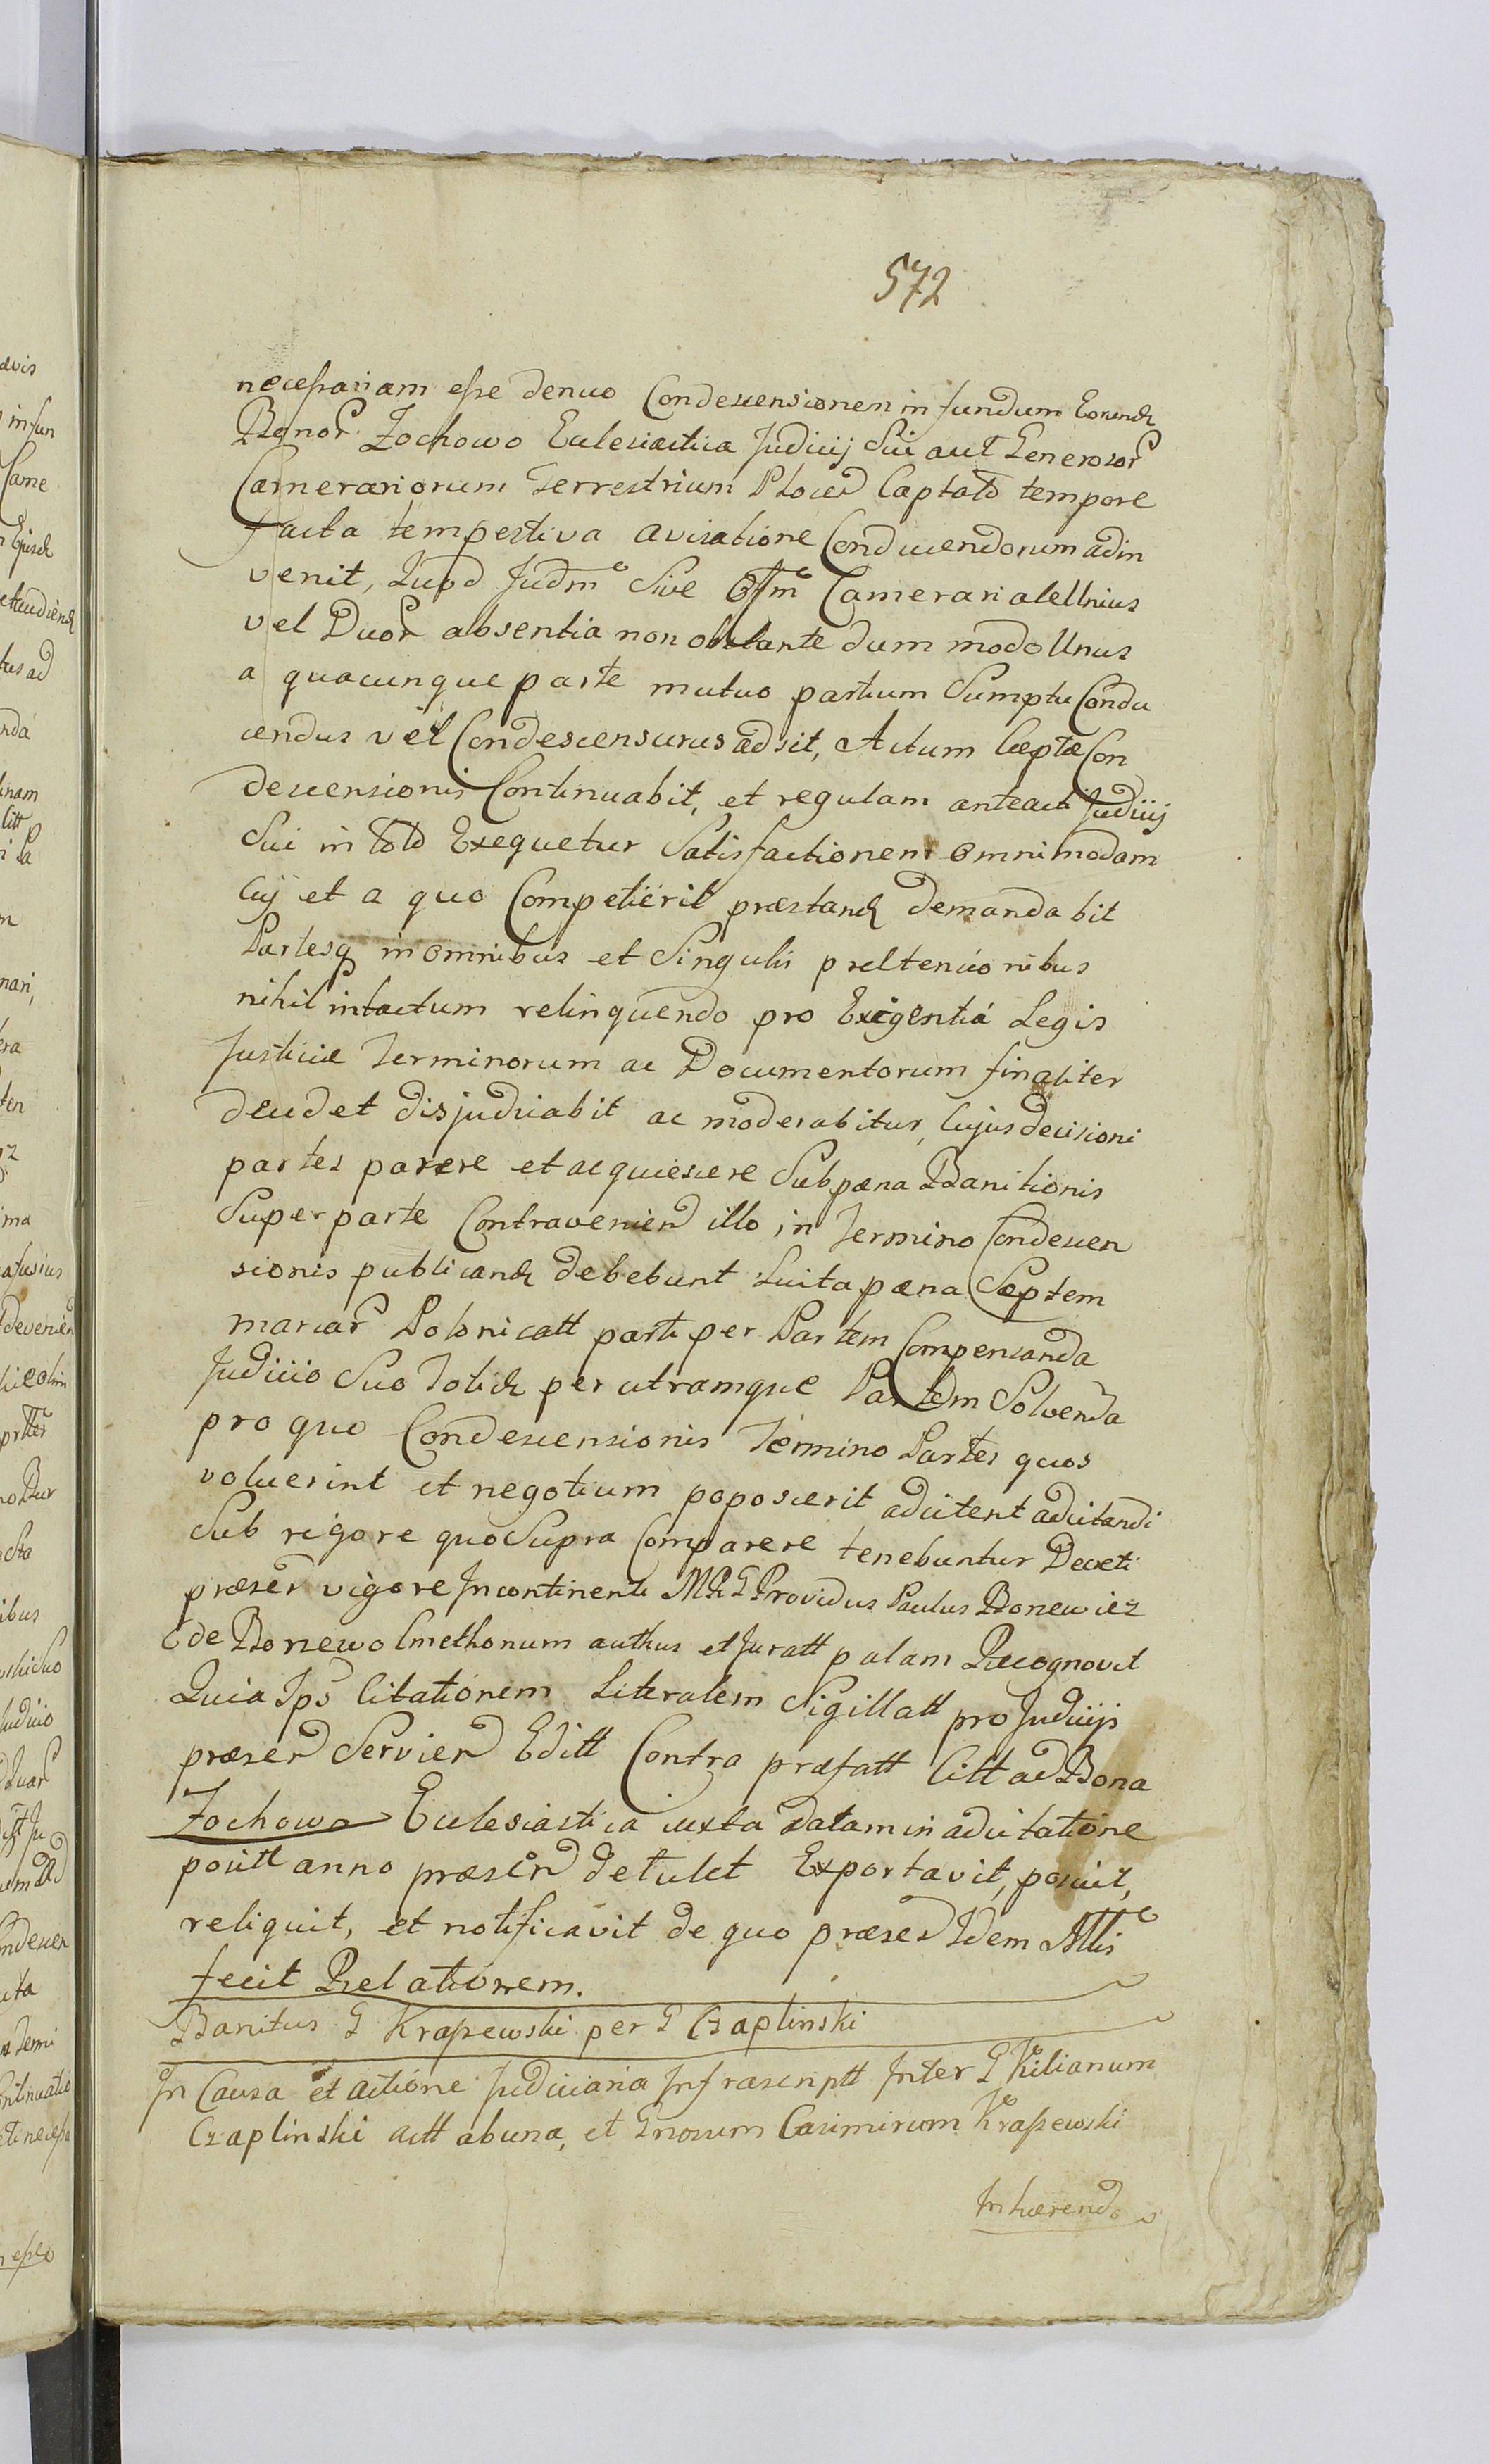 572
necessariam esse denuo Condescensionem in fundum Eorund
Bonor Zochowo Eclesiastica Judicij Sui aut Generosor
Camerariorum Terrestrium Plocen Captato tempore
facta tempestiva avisatione Conducendorum adin
venit, Quod Judm Sive Offm Camerariale Unius
vel Duor absentia non obstante dum modo Unus
a quacunque parte mutuo partium Sumptu Condu
cendus vel Condescensurus adsit, Actum Cæptæ Con
descensionis Continuabit, et regulam anteacti Judicij
Sui in toto Exequetur Satisfactionem omnimodam
Cuj et a quo Competierit præstand demandabit
Partesq in omnibus et Singulis prætensionibus
nihil intactum relinquendo pro Exigentia Legis
Justitiæ Terminorum ac Documentorum finaliter
decidet disjudicabit ac moderabitur, Cujus decisioni
partes parere et acquiescere Sub pæna Banitionis
Super parte Contravenien illo in Termino Condescen
sionis publicand debebunt Luita pæna Septem
marcar Polonicatt parti per Partem Compensanda
Judicio Suo Totid per utramque Partem Solvenda
pro quo Condescensionis Termino Partes quos
voluerint et negotium poposcerit adcitent adcitandi
Sub rigore quo Supra Comparere tenebuntur Decreti
præsen vigore Incontinenti M R G Providus Paulus Bonewicz
de Bonewo Cmethonum authus et Juratt palam Recognovit
Quia Ips Citationem Literalem Sigillatt pro Judicijs
præsen Servien Editt Contra præfatt Citt ad Bona
Zochowo Eclesiastica iuxta datam in adcitatione
positt anno præsen detulit Exportavit, posuit,
reliquit, et notificavit de quo præsen Idem Mllis
fecit Relationem.
Banitus G Krassewski per G Czaplinski
In Causa et actione Judiciaria Infrascriptt Inter G Kilianum
Czaplinski Actt ab una, et Gnosum Casimirum Krassewski
Inhærendo